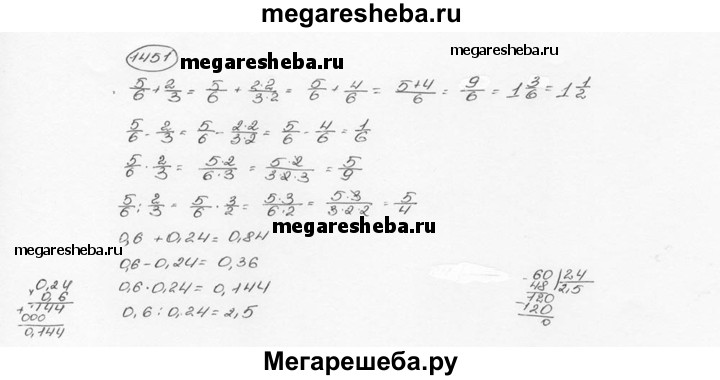 megaresheba.ru
1451
megaresheba.ru
megaresheba.ru
5/6 + 2/3 = 5/6 + 2·2/3·2 = 5/6 + 4/6 = 5+4/6 = 9/6 = 1 3/6 = 1 1/2
5/6 - 2/3 = 5/6 - 2·2/3·2 = 5/6 - 4/6 = 1/6
5/6 · 2/3 = 5·2/6·3 = 5·2/3·2·3 = 5/9
5/6 : 2/3 = 5/6 · 3/2 = 5·3/6·2 = 5·3/3·2·2 = 5/4
megaresheba.ru
0,6 + 0,24 = 0,84
megaresheba.ru
0,6 - 0,24 = 0,36
0,6 · 0,24 = 0,144
0,6 : 0,24 = 2,5
× 0,24
0,6
+ 144
000
0,144
- 60 | 24
48 | 2,5
- 120
120
0
Мегарешеба.ру